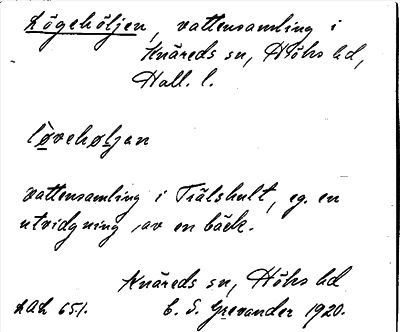 Lögehöljen, vattensamling i
Knäreds sn, Höks hd,
Hall. l.
løvehøljan
Vattensamling i Trälshult, eg. en
utvidgning av en bäck.
Knäreds sn, Höks hd
LAL 651. E. S. Grevander 1920.